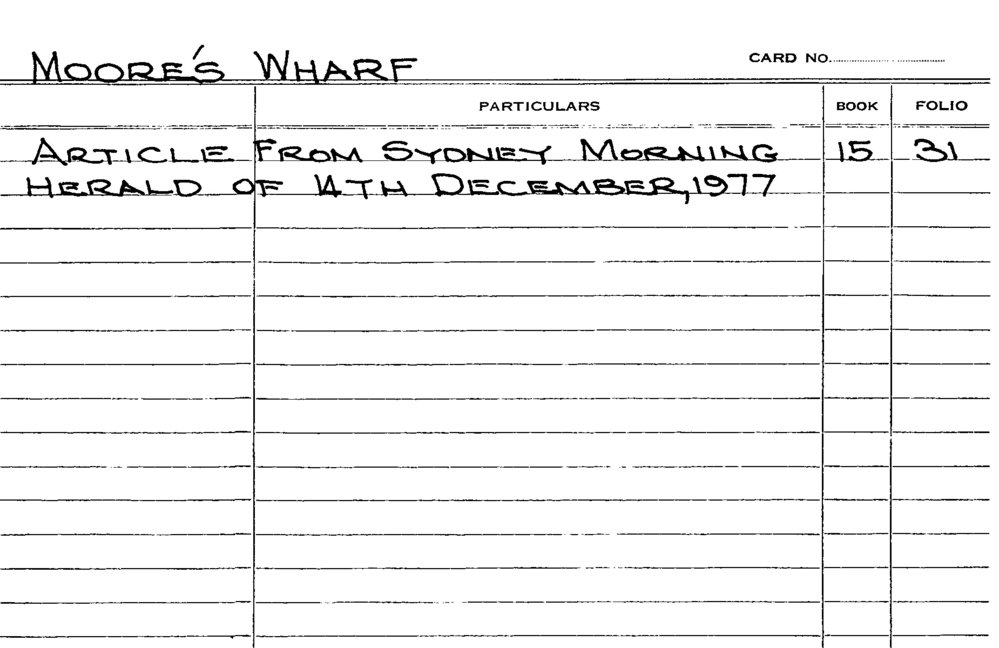 MOORE'S WHARF
CARD NO.
PARTICULARS BOOK FOLIO
ARTICLE FROM SYDNEY MORNING 15 31
HERALD OF 14TH DECEMBER, 1977